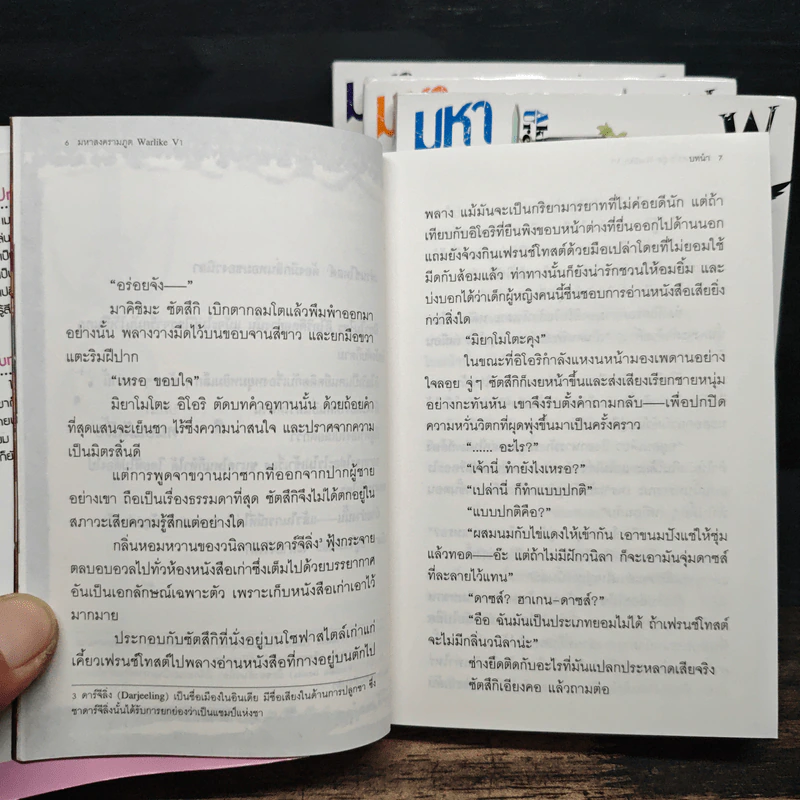 6 มหาสงครามภูต Warlike V1
"อร่อยจัง——"
มาคิชิมะ ซัตสึกิ เบิกตากลมโตแล้วพึมพำออกมา
อย่างนั้น พลางวางมีดไว้บนขอบจานสีขาว และยกมือขวา
แตะริมฝีปาก
"เหรอ ขอบใจ"
มิยาโมโตะ อิโอริ ตัดบทคำอุทานนั้น ด้วยถ้อยคำ
ที่สุดแสนจะเย็นชา ไร้ซึ่งความน่าสนใจ และปราศจากความ
เป็นมิตรสิ้นดี
แต่การพูดจาขวานผ่าซากที่ออกจากปากผู้ชาย
อย่างเขา ถือเป็นเรื่องธรรมดาที่สุด ซัตสึกิจึงไม่ได้ตกอยู่ใน
สภาวะเสียความรู้สึกแต่อย่างใด
กลิ่นหอมหวานของวนิลาและดาร์จีลิ่ง³ ฟุ้งกระจาย
ตลบอบอวลไปทั่วห้องหนังสือเก่าซึ่งเต็มไปด้วยบรรยากาศ
อันเป็นเอกลักษณ์เฉพาะตัว เพราะเก็บหนังสือเก่าเอาไว้
มากมาย
ประกอบกับซัตสึกิที่นั่งอยู่บนโซฟาสไตล์เก่าแก่
เคี้ยวเฟรนช์โทสต์ไปพลางอ่านหนังสือที่กางอยู่บนตักไป
3 ดาร์จีลิ่ง (Darjeeling) เป็นชื่อเมืองในอินเดีย มีชื่อเสียงในด้านการปลูกชา ซึ่ง
ชาดาร์จีลิ่งนั้นได้รับการยกย่องว่าเป็นแชมป์แห่งชา
บทนำ 7
พลาง แม้มันจะเป็นกริยามารยาทที่ไม่ค่อยดีนัก แต่ถ้า
เทียบกับอิโอริที่ยืนพิงขอบหน้าต่างที่ยื่นออกไปด้านนอก
แถมยังจ้วงกินเฟรนช์โทสต์ด้วยมือเปล่าโดยที่ไม่ยอมใช้
มีดกับส้อมแล้ว ท่าทางนั้นก็ยังน่ารักชวนให้อมยิ้ม และ
บ่งบอกได้ว่าเด็กผู้หญิงคนนี้ชื่นชอบการอ่านหนังสือเสียยิ่ง
กว่าสิ่งใด
"มิยาโมโตะคุง"
ในขณะที่อิโอริกำลังแหงนหน้ามองเพดานอย่าง
ใจลอย จู่ๆ ซัตสึกิก็เงยหน้าขึ้นและส่งเสียงเรียกชายหนุ่ม
อย่างกะทันหัน เขาจึงรีบตั้งคำถามกลับ——เพื่อปกปิด
ความหวั่นวิตกที่ผุดพุ่งขึ้นมาเป็นครั้งคราว
"...... อะไร?"
"เจ้านี่ ทำยังไงเหรอ?"
"เปล่านี่ ก็ทำแบบปกติ"
"แบบปกติคือ?"
"ผสมนมกับไข่แดงให้เข้ากัน เอาขนมปังแช่ให้ชุ่ม
แล้วทอด——อ๊ะ แต่ถ้าไม่มีฝักวนิลา ก็จะเอามันจุ่มดาซส์
ที่ละลายไว้แทน"
"ดาซส์? ฮาเกน-ดาซส์?"
"อือ ฉันมันเป็นประเภทยอมไม่ได้ ถ้าเฟรนช์โทสต์
จะไม่มีกลิ่นวนิลาน่ะ"
ช่างยึดติดกับอะไรที่มันแปลกประหลาดเสียจริง
ซัตสึกิเอียงคอ แล้วถามต่อ
มหา
W